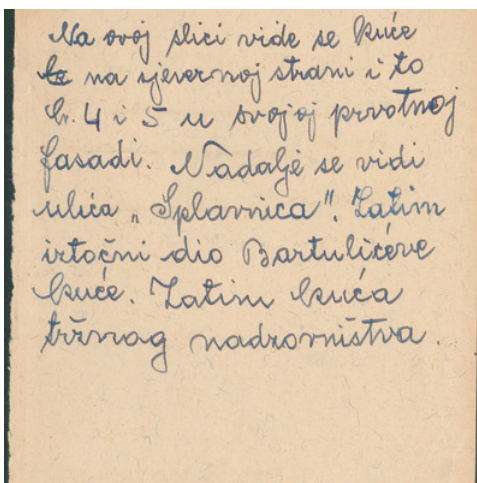 Na ovoj slici vide se kuće
na sjevernoj strani i to
br. 4 i 5 u svojoj prvotnoj
fasadi. Nadalje se vidi
ulica „Splavnica". Zatim
istočni dio Bartulićeve
kuće. Zatim kuća
tržnog nadzorništva.